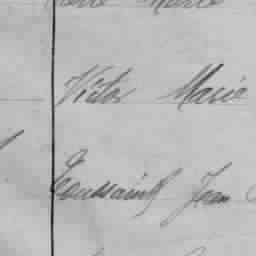 Victor Marie
Toussaint Jean